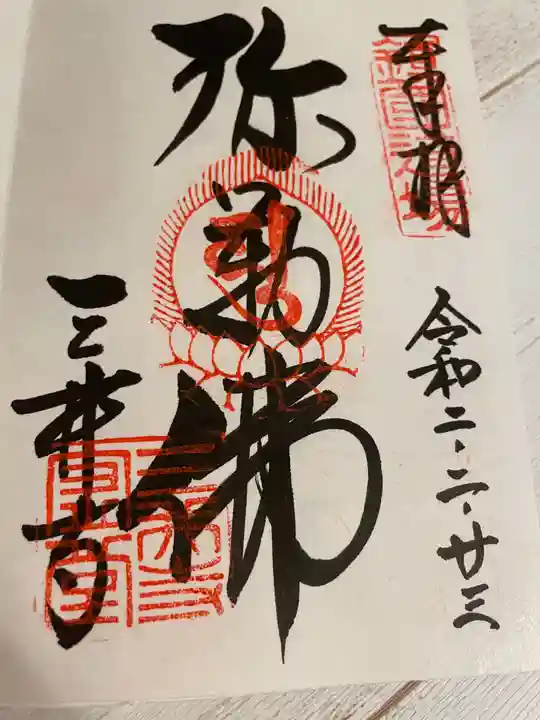 奉拝
令和二.二.廿三
弥勒佛
三井寺